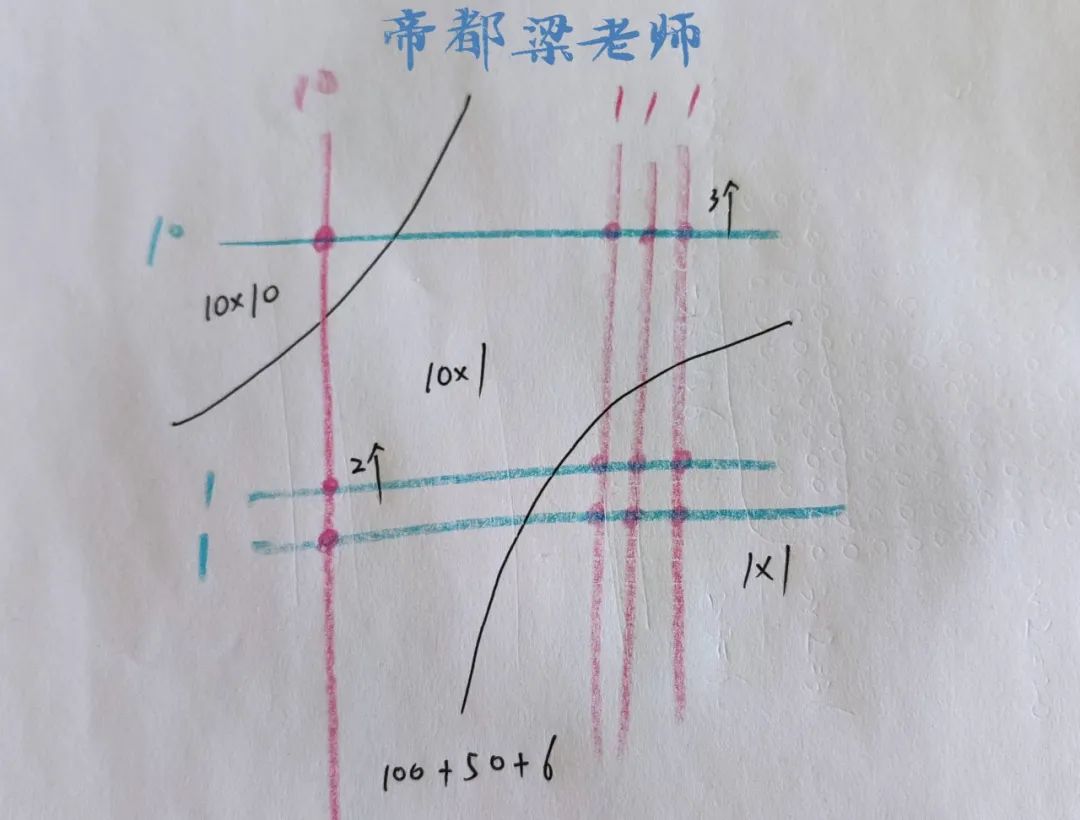 帝都梁老师
10 1 1 1
3个
10
10×10
10×1
2个
1
1
1×1
100+50+6